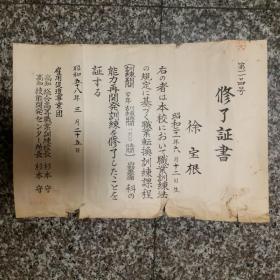 第二一四号
修了証書
徐宝根
昭和三十一年六月十二日生
右の者は本校において職業訓練法
の規定に基づく職業転換訓練課程
科の
能力再開発訓練を修了したことを
証する
昭和五十八年三月二十五日
雇用促進事業団
高知総合高等職業訓練校長 杉本守
高知技能開発センター所長 杉本守